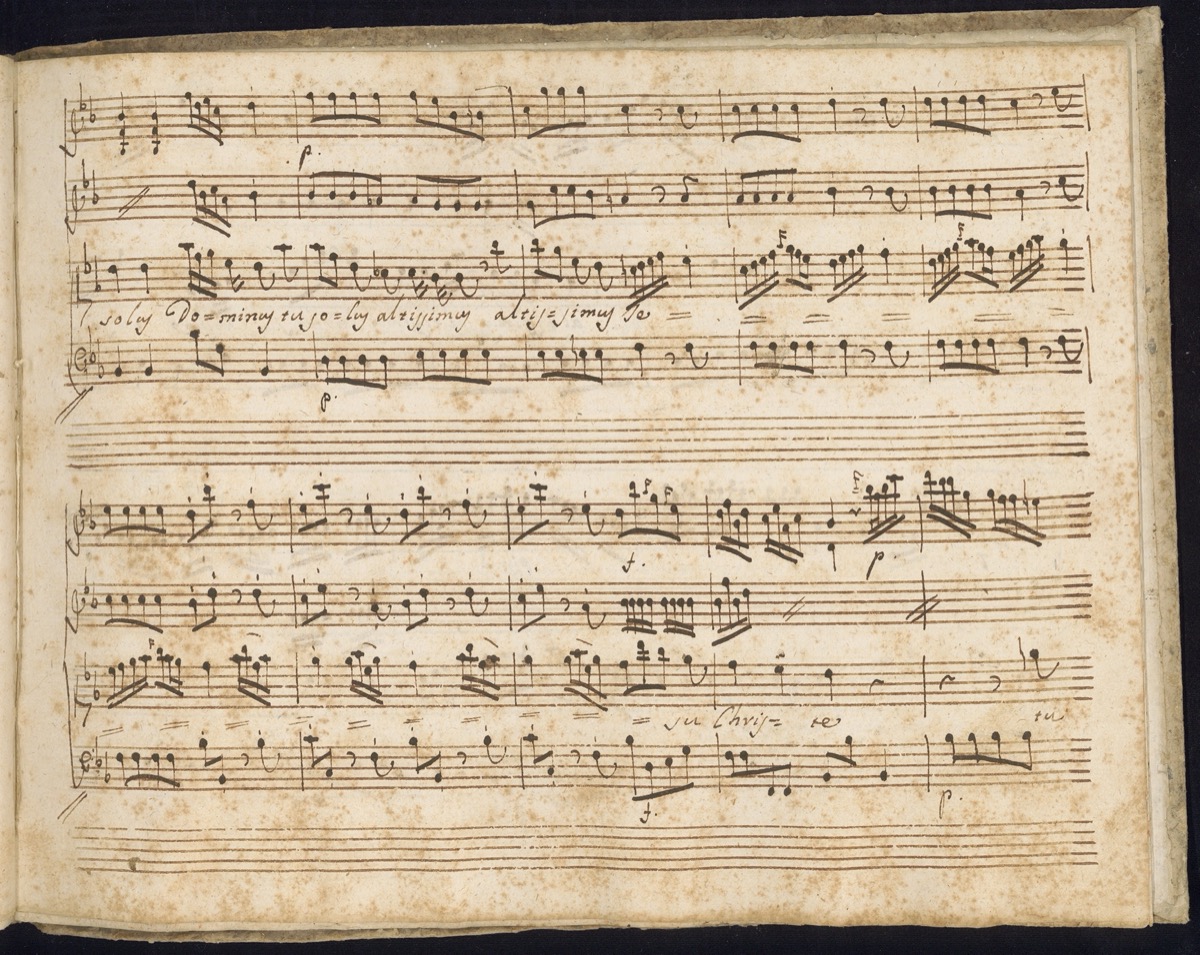 p.
solus Do=minus tu so=lus altissimus altis=simus Je = = = = = =
p.
f. p.
= = = = = = = = = su Chris= te tu
f. p.